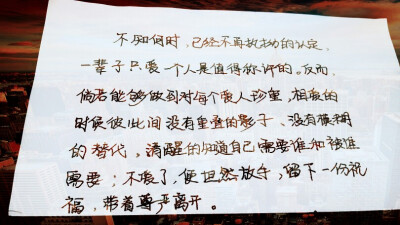 不知何时，已经不再执拗的认定，
一辈子只爱一个人是值得称许的。反而，
倘若能够做到对每个爱人珍重，相爱的
时候彼此间没有重叠的影子、没有模糊
的替代，清醒的知道自己需要谁和被谁
需要；不爱了，便坦然放手，留下一份祝
福，带着尊严离开。